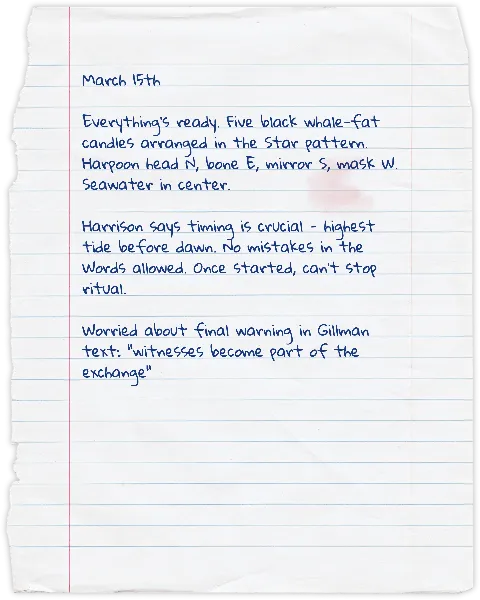 March 15th
Everything's ready. Five black whale-fat
candles arranged in the Star pattern.
Harpoon head N, bone E, mirror S, mask W.
Seawater in center.
Harrison says timing is crucial - highest
tide before dawn. No mistakes in the
Words allowed. Once started, can't stop
ritual.
Worried about final warning in Gillman
text: "witnesses become part of the
exchange"